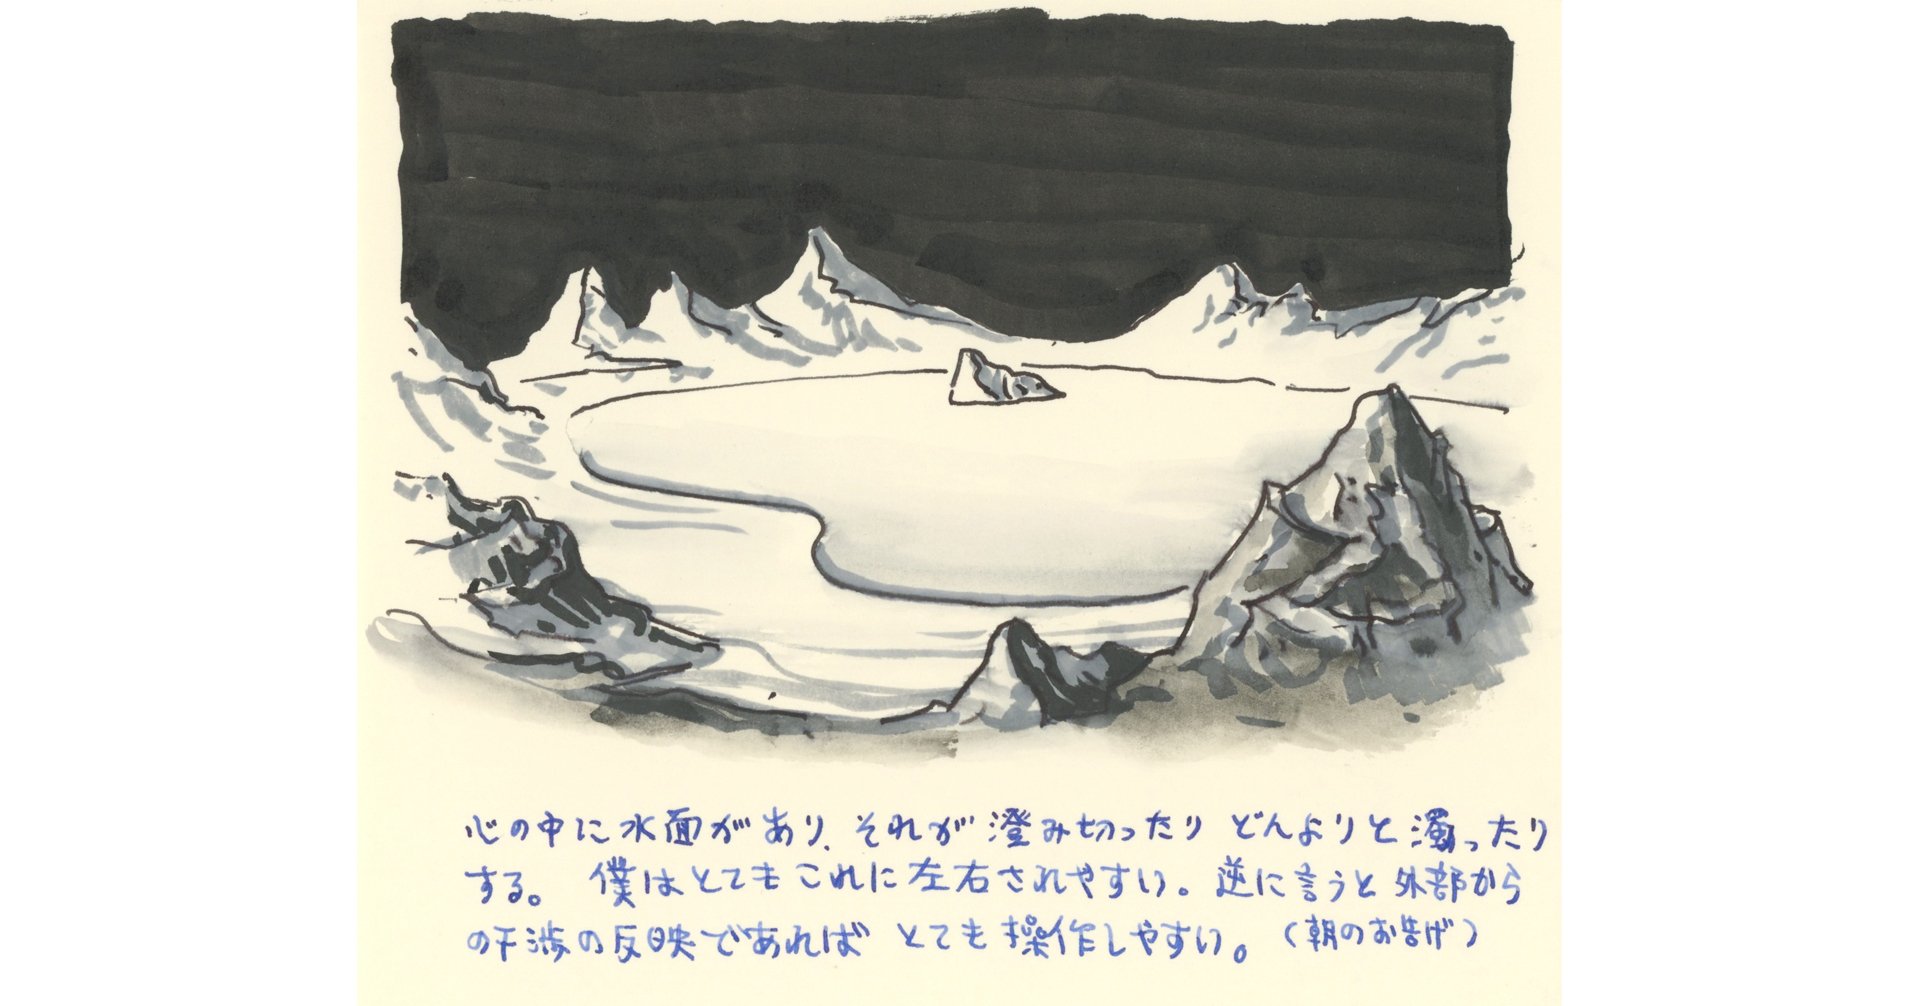 心の中に水面があり、それが澄み切ったりどんよりと濁ったり
する。 僕はとてもこれに左右されやすい。逆に言うと外部から
の干渉の反映であればとても操作しやすい。(朝のお告げ)